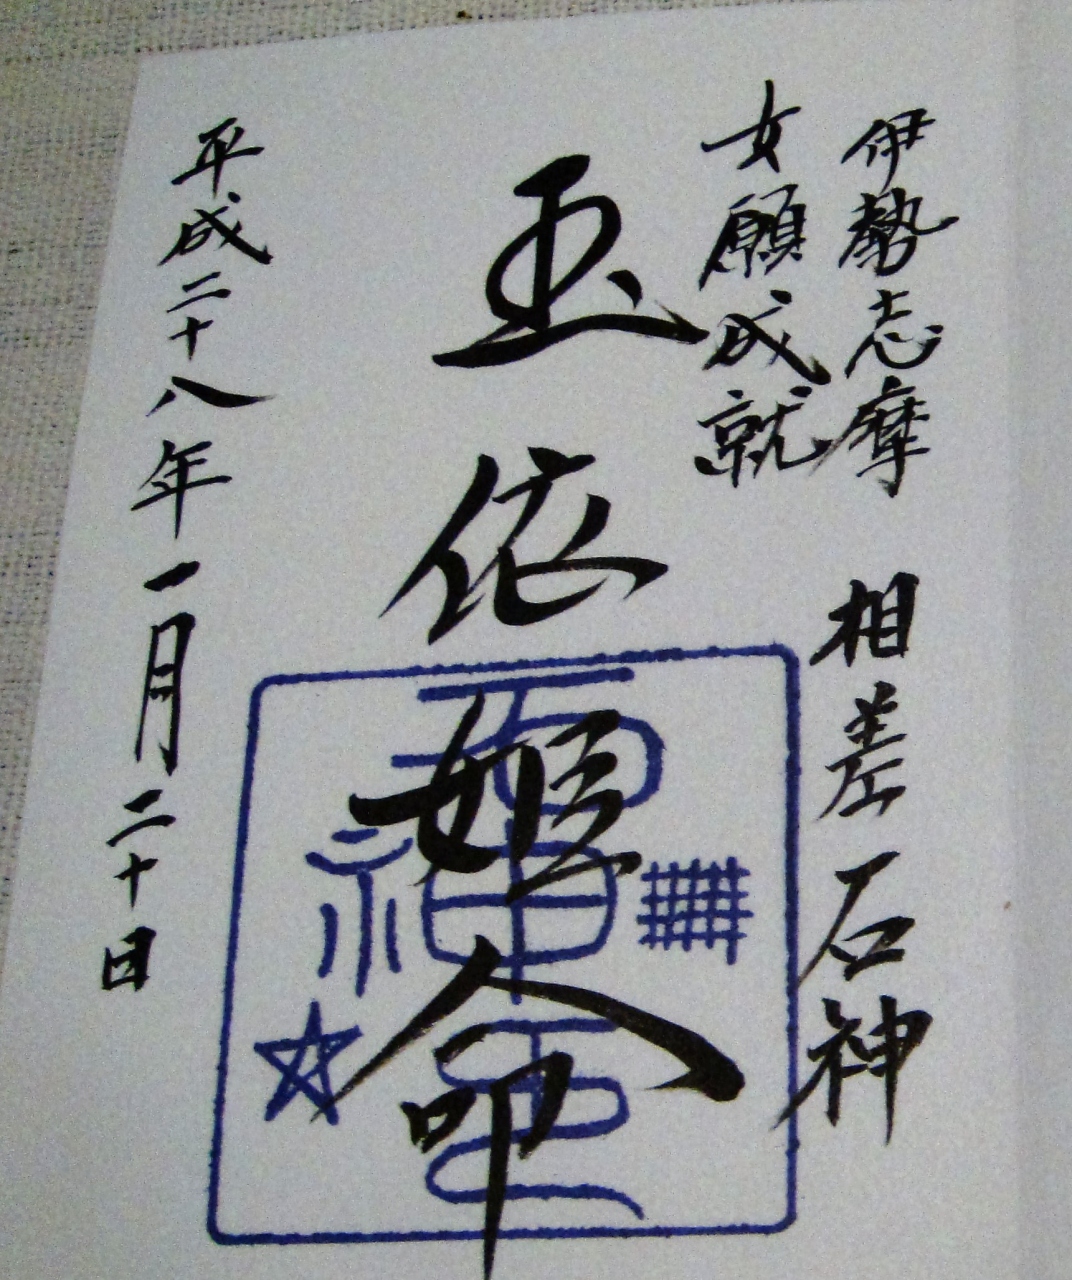 伊勢志摩　相差　石神
女願成就
玉依姫命
石神
之印
平成二十八年一月二十日